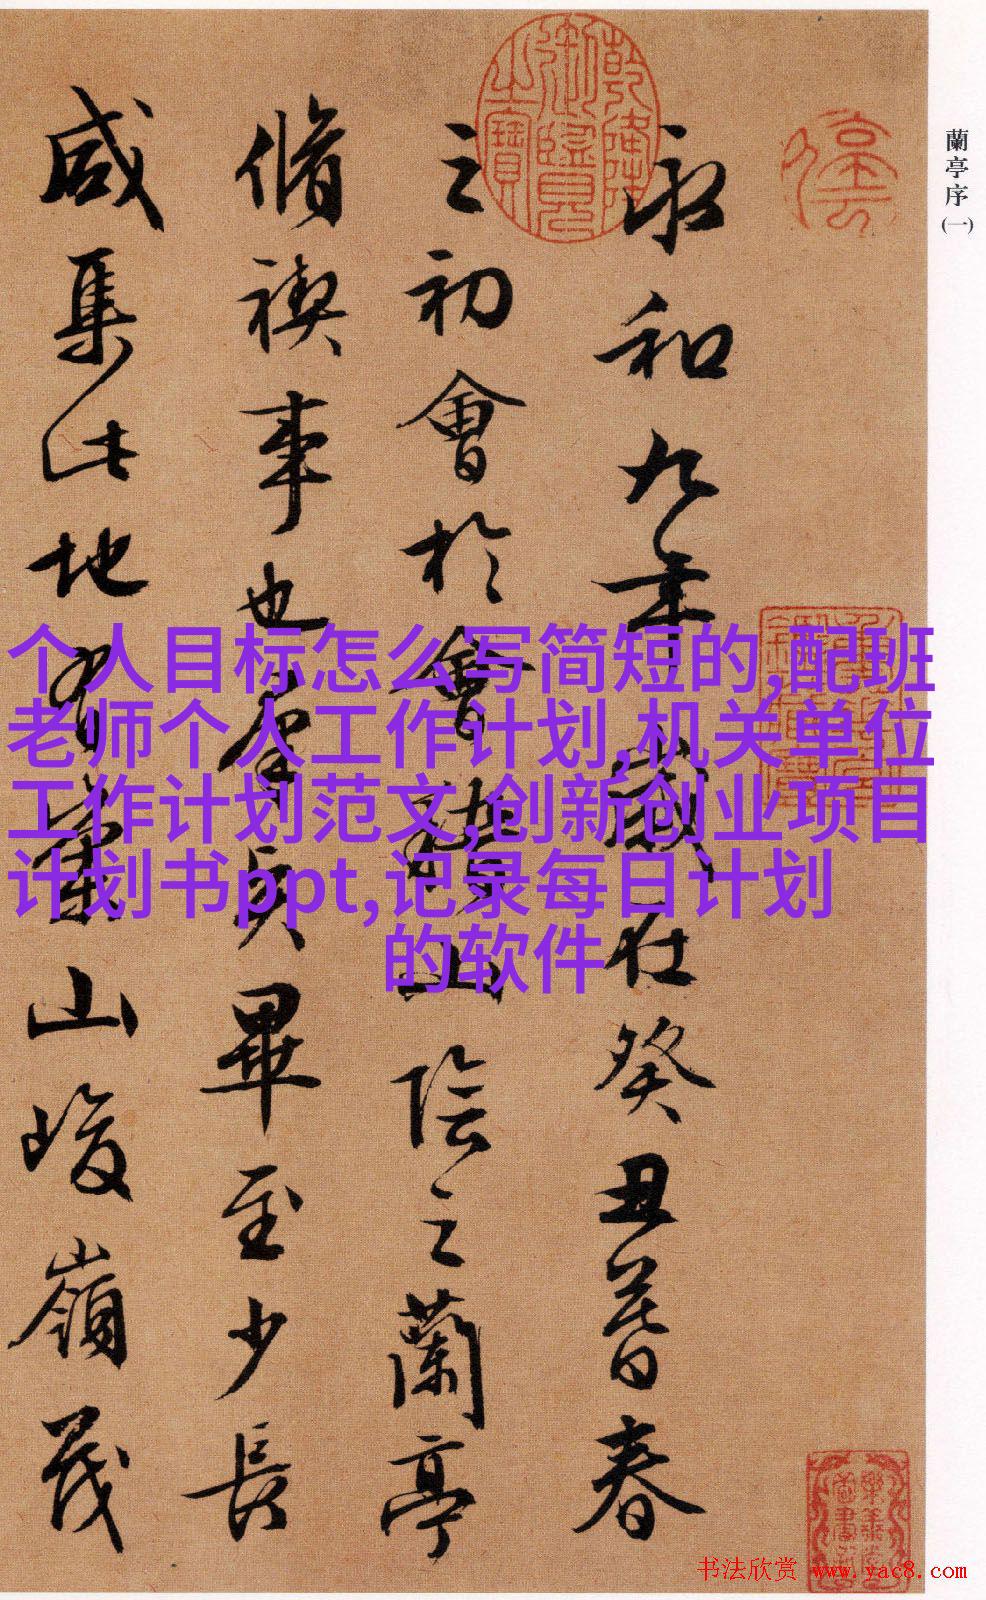 蘭亭序(一)
永和九年歲在癸丑暮春
之初會於會稽山陰之蘭亭
脩禊事也羣賢畢至少長
咸集此地有崇山峻嶺茂
乾隆御覽之寶
个人目标怎么写简短的,配班
老师个人工作计划,机关单位
工作计划范文,创新创业项目
计划书ppt,记录每日计划
的软件
书法欣赏 www.yac8.com